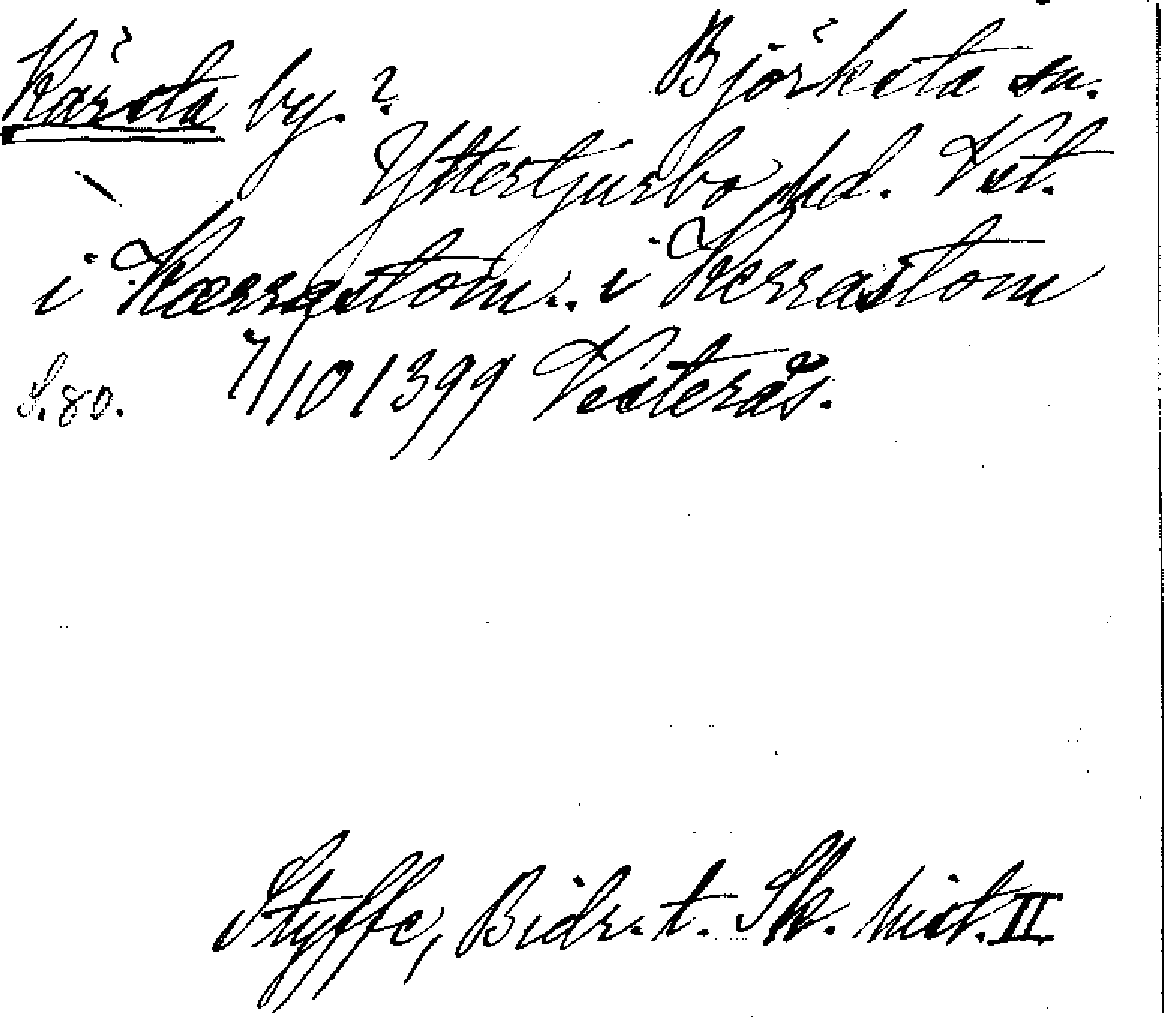 Kärsta by.? Björksta sn.
Yttertjurbo hd. Vst.
i Kærrastom.. i Kerrastom
S. 80. 7/10 1399 Vesterås.
Styffe, Bidr. t. Sk. hist. II